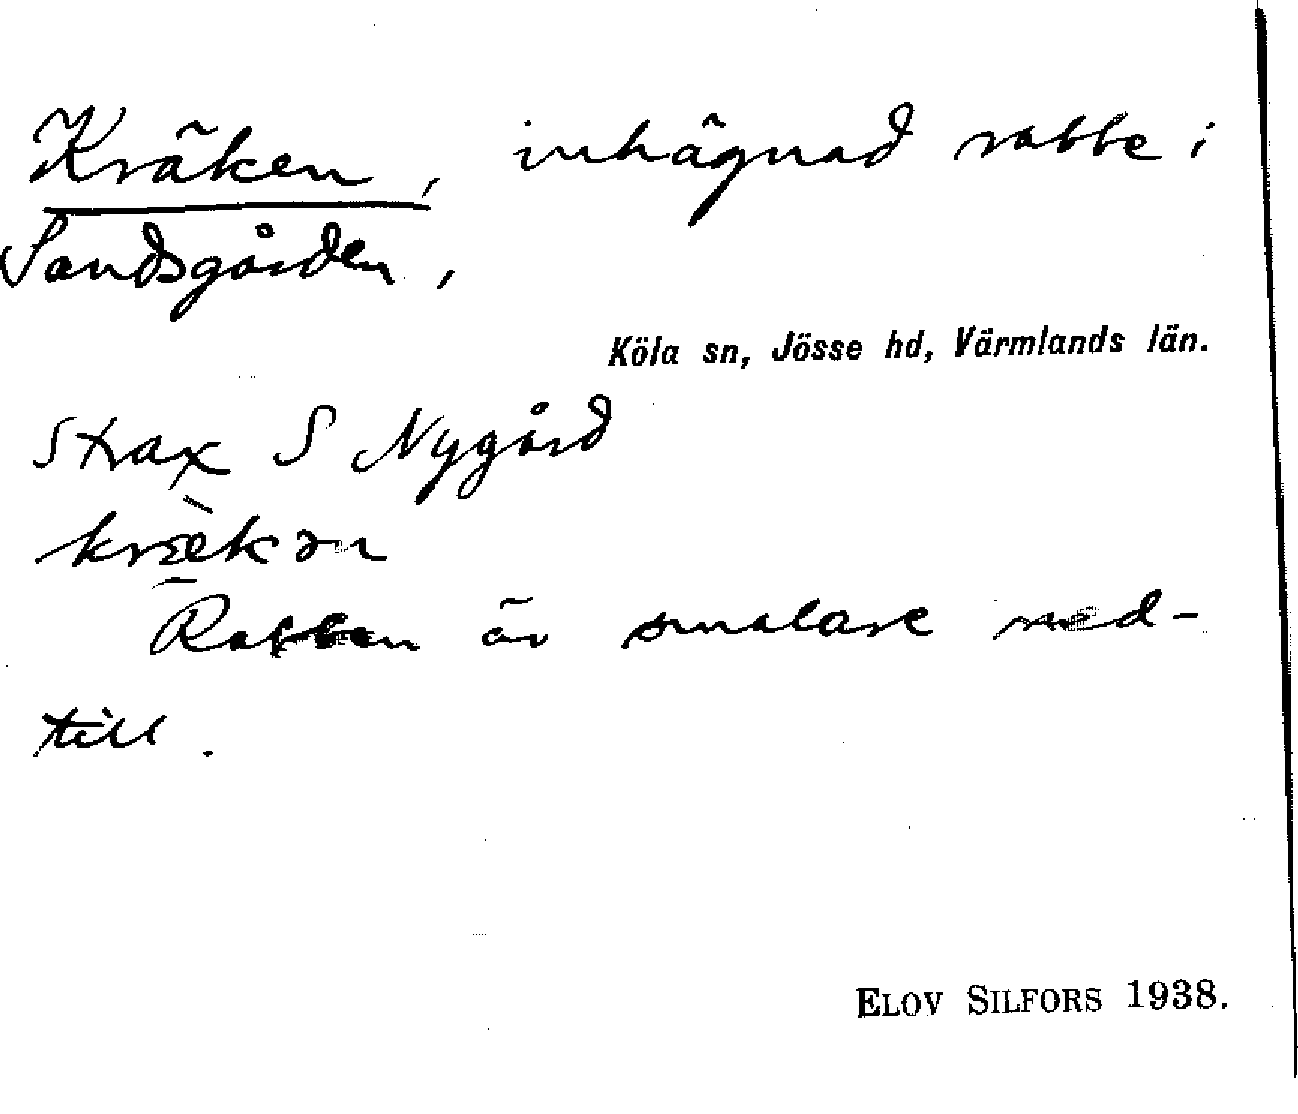 Kräken, inhägnad rabbe i
Sandsgården,
Köla sn, Jösse hd, Värmlands län.
Strax S Nygård
kræ̀kən
Rabben är smalare ned-
till.
ELOV SILFORS 1938.